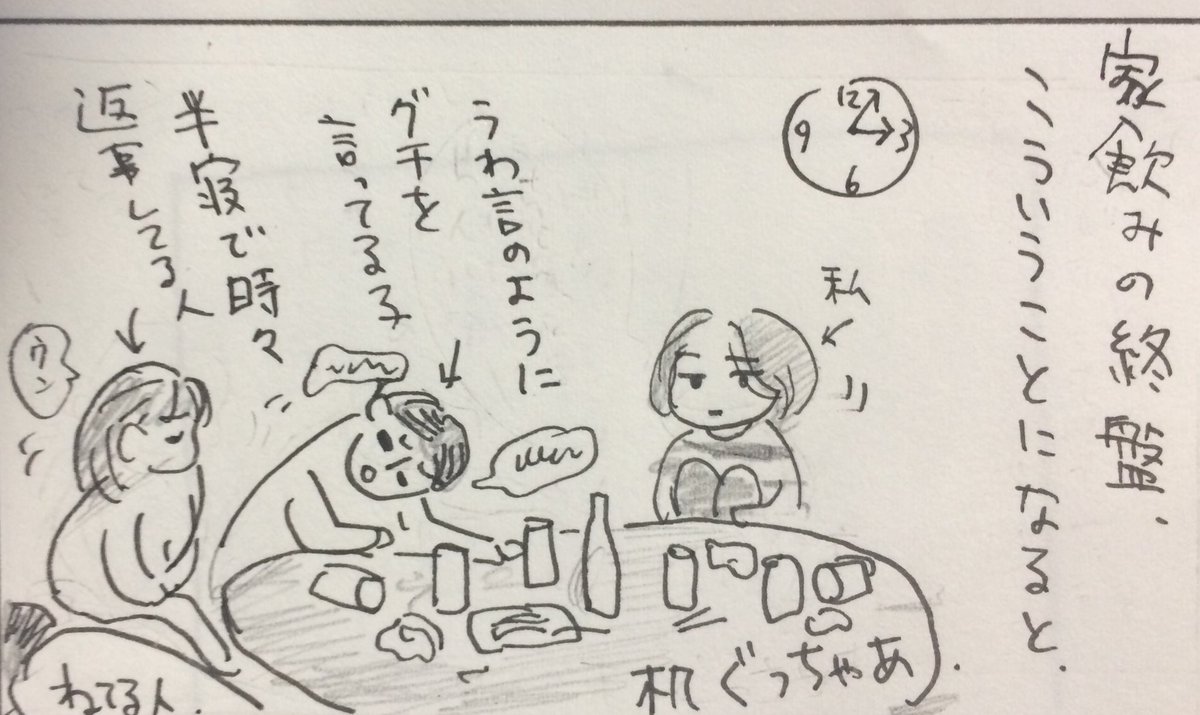 家飲みの終盤.
こういうことになると.
12
3
6
9
私
うわ言のように
グチを
言ってる子
半寝で時々
返事してる人
ウン
机ぐっちゃあ.
ねてる人.